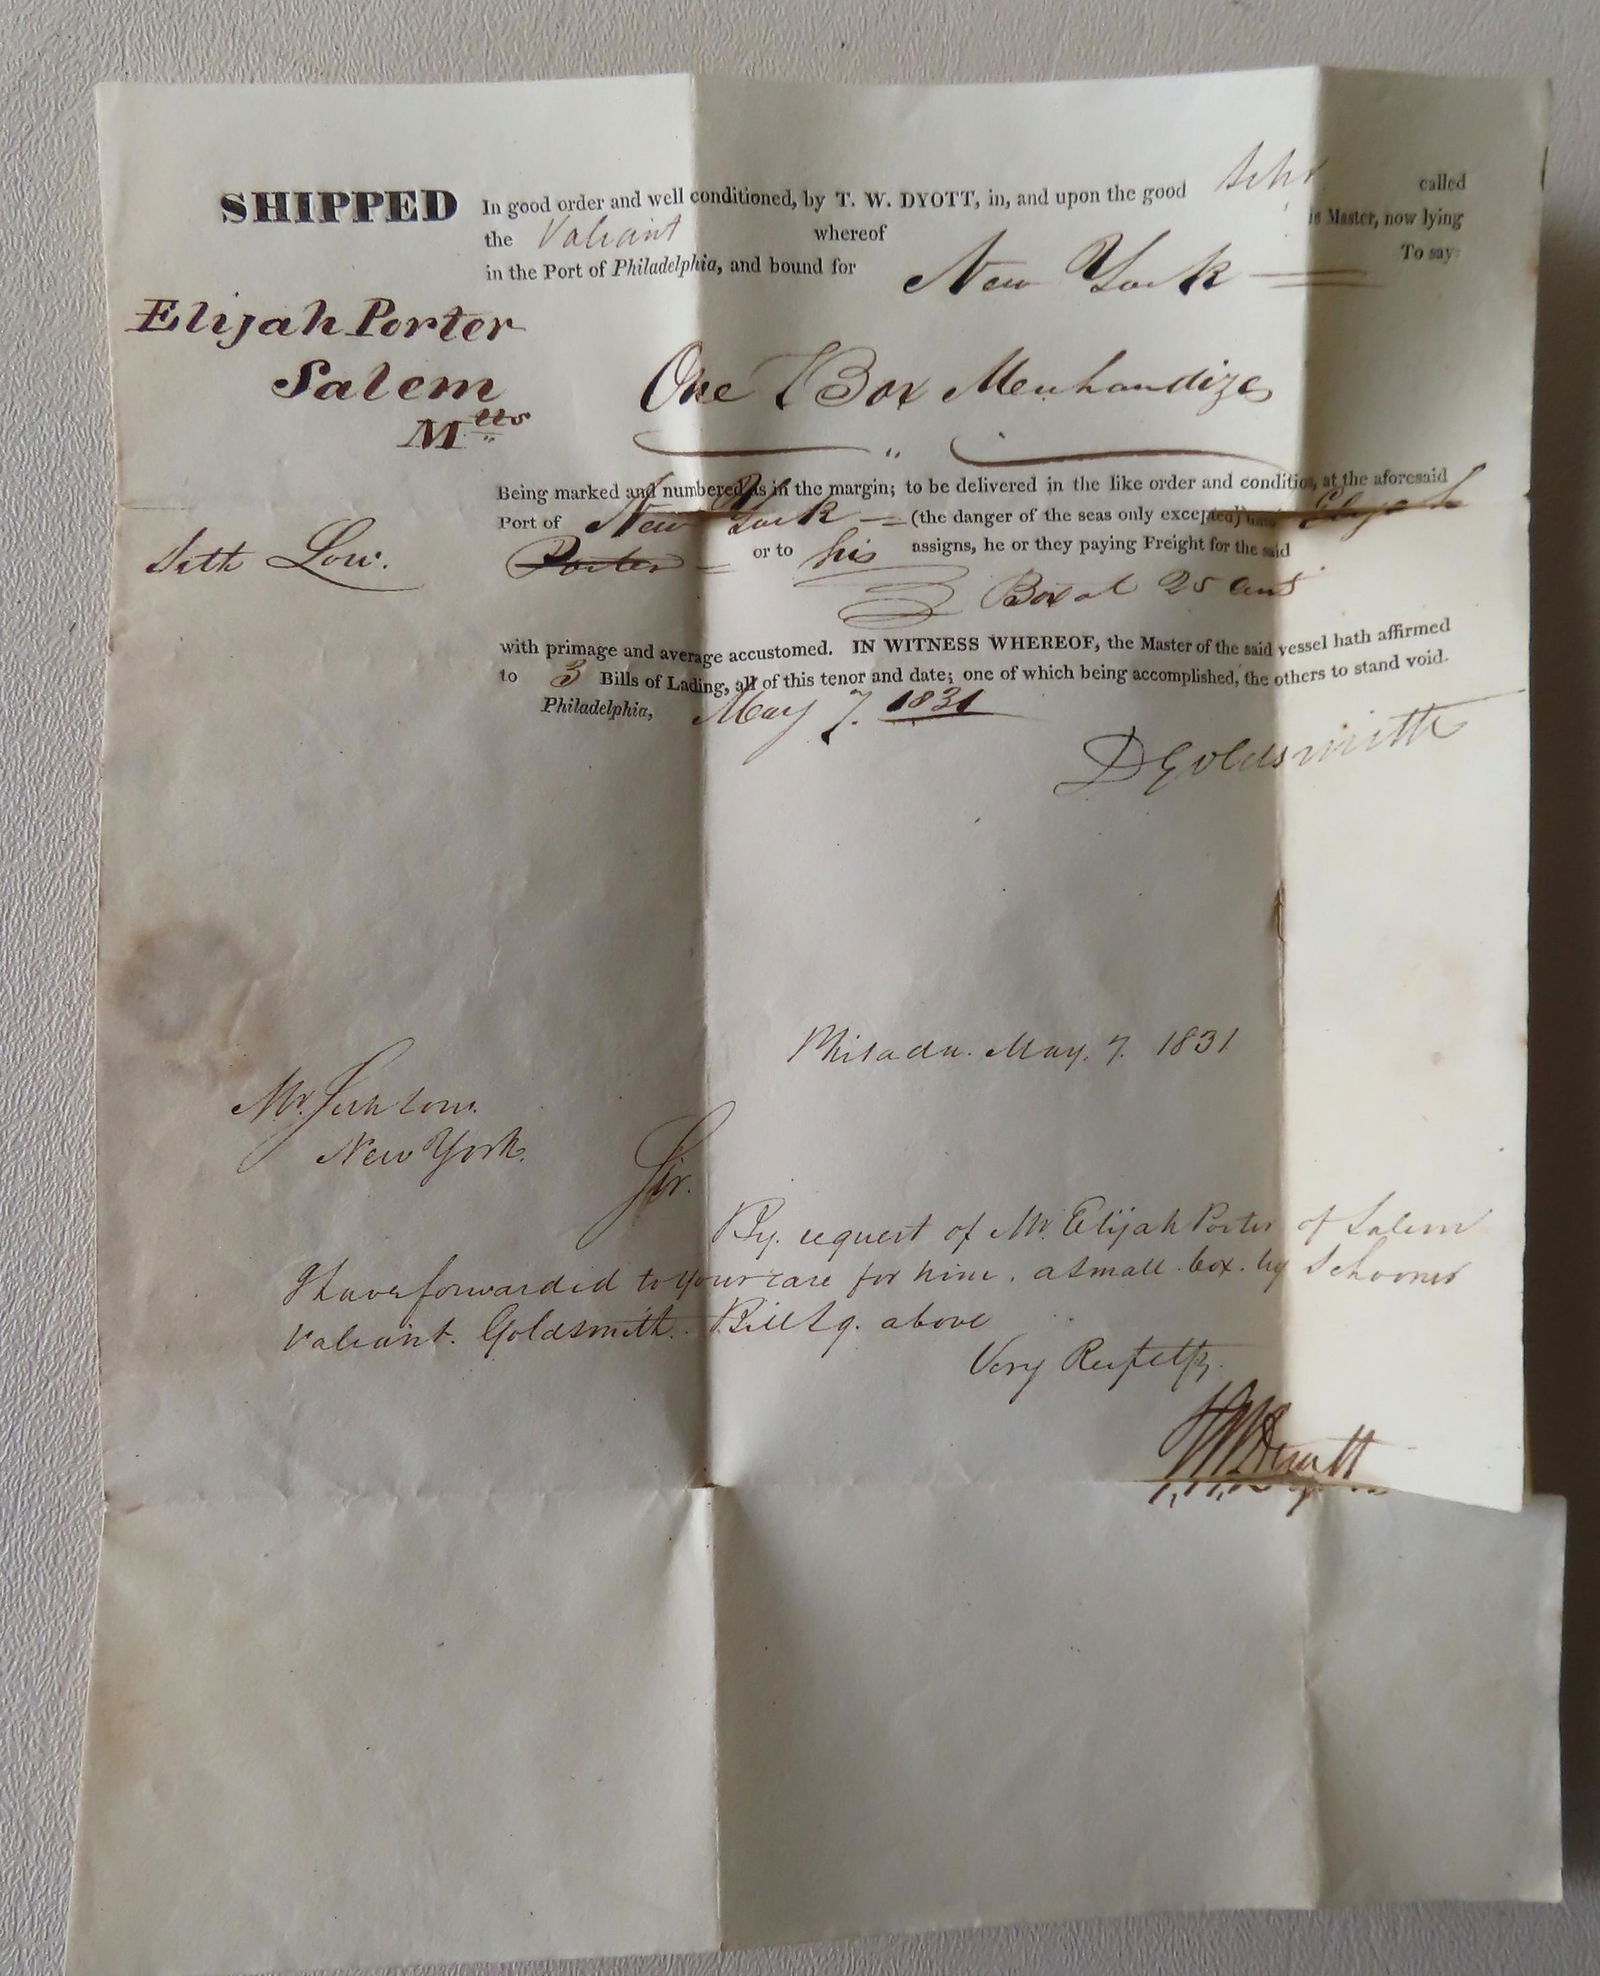 SHIPPED In good order and well conditioned, by T. W. DYOTT, in, and upon the good Schr called
the Valiant whereof is Master, now lying
in the Port of Philadelphia, and bound for New York To say:
Elijah Porter
Salem
Mtts
One Box Merchandize
Being marked and numbered as in the margin; to be delivered in the like order and condition, at the aforesaid
Port of New York (the danger of the seas only excepted) unto Elijah
Seth Low.
Porter or to his assigns, he or they paying Freight for the said
Box at 25 cents
with primage and average accustomed. IN WITNESS WHEREOF, the Master of the said vessel hath affirmed
to 3 Bills of Lading, all of this tenor and date; one of which being accomplished, the others to stand void.
Philadelphia, May 7. 1831
D Goldsmith
Philada. May. 7. 1831
Mr. Seth Low.
New York.
Sir.
By. request of Mr. Elijah Porter of Salem
I have forwarded to your care for him. a small. box. by Schooner
Valiant. Goldsmith. Bill Lg. above
Very Respectfy.